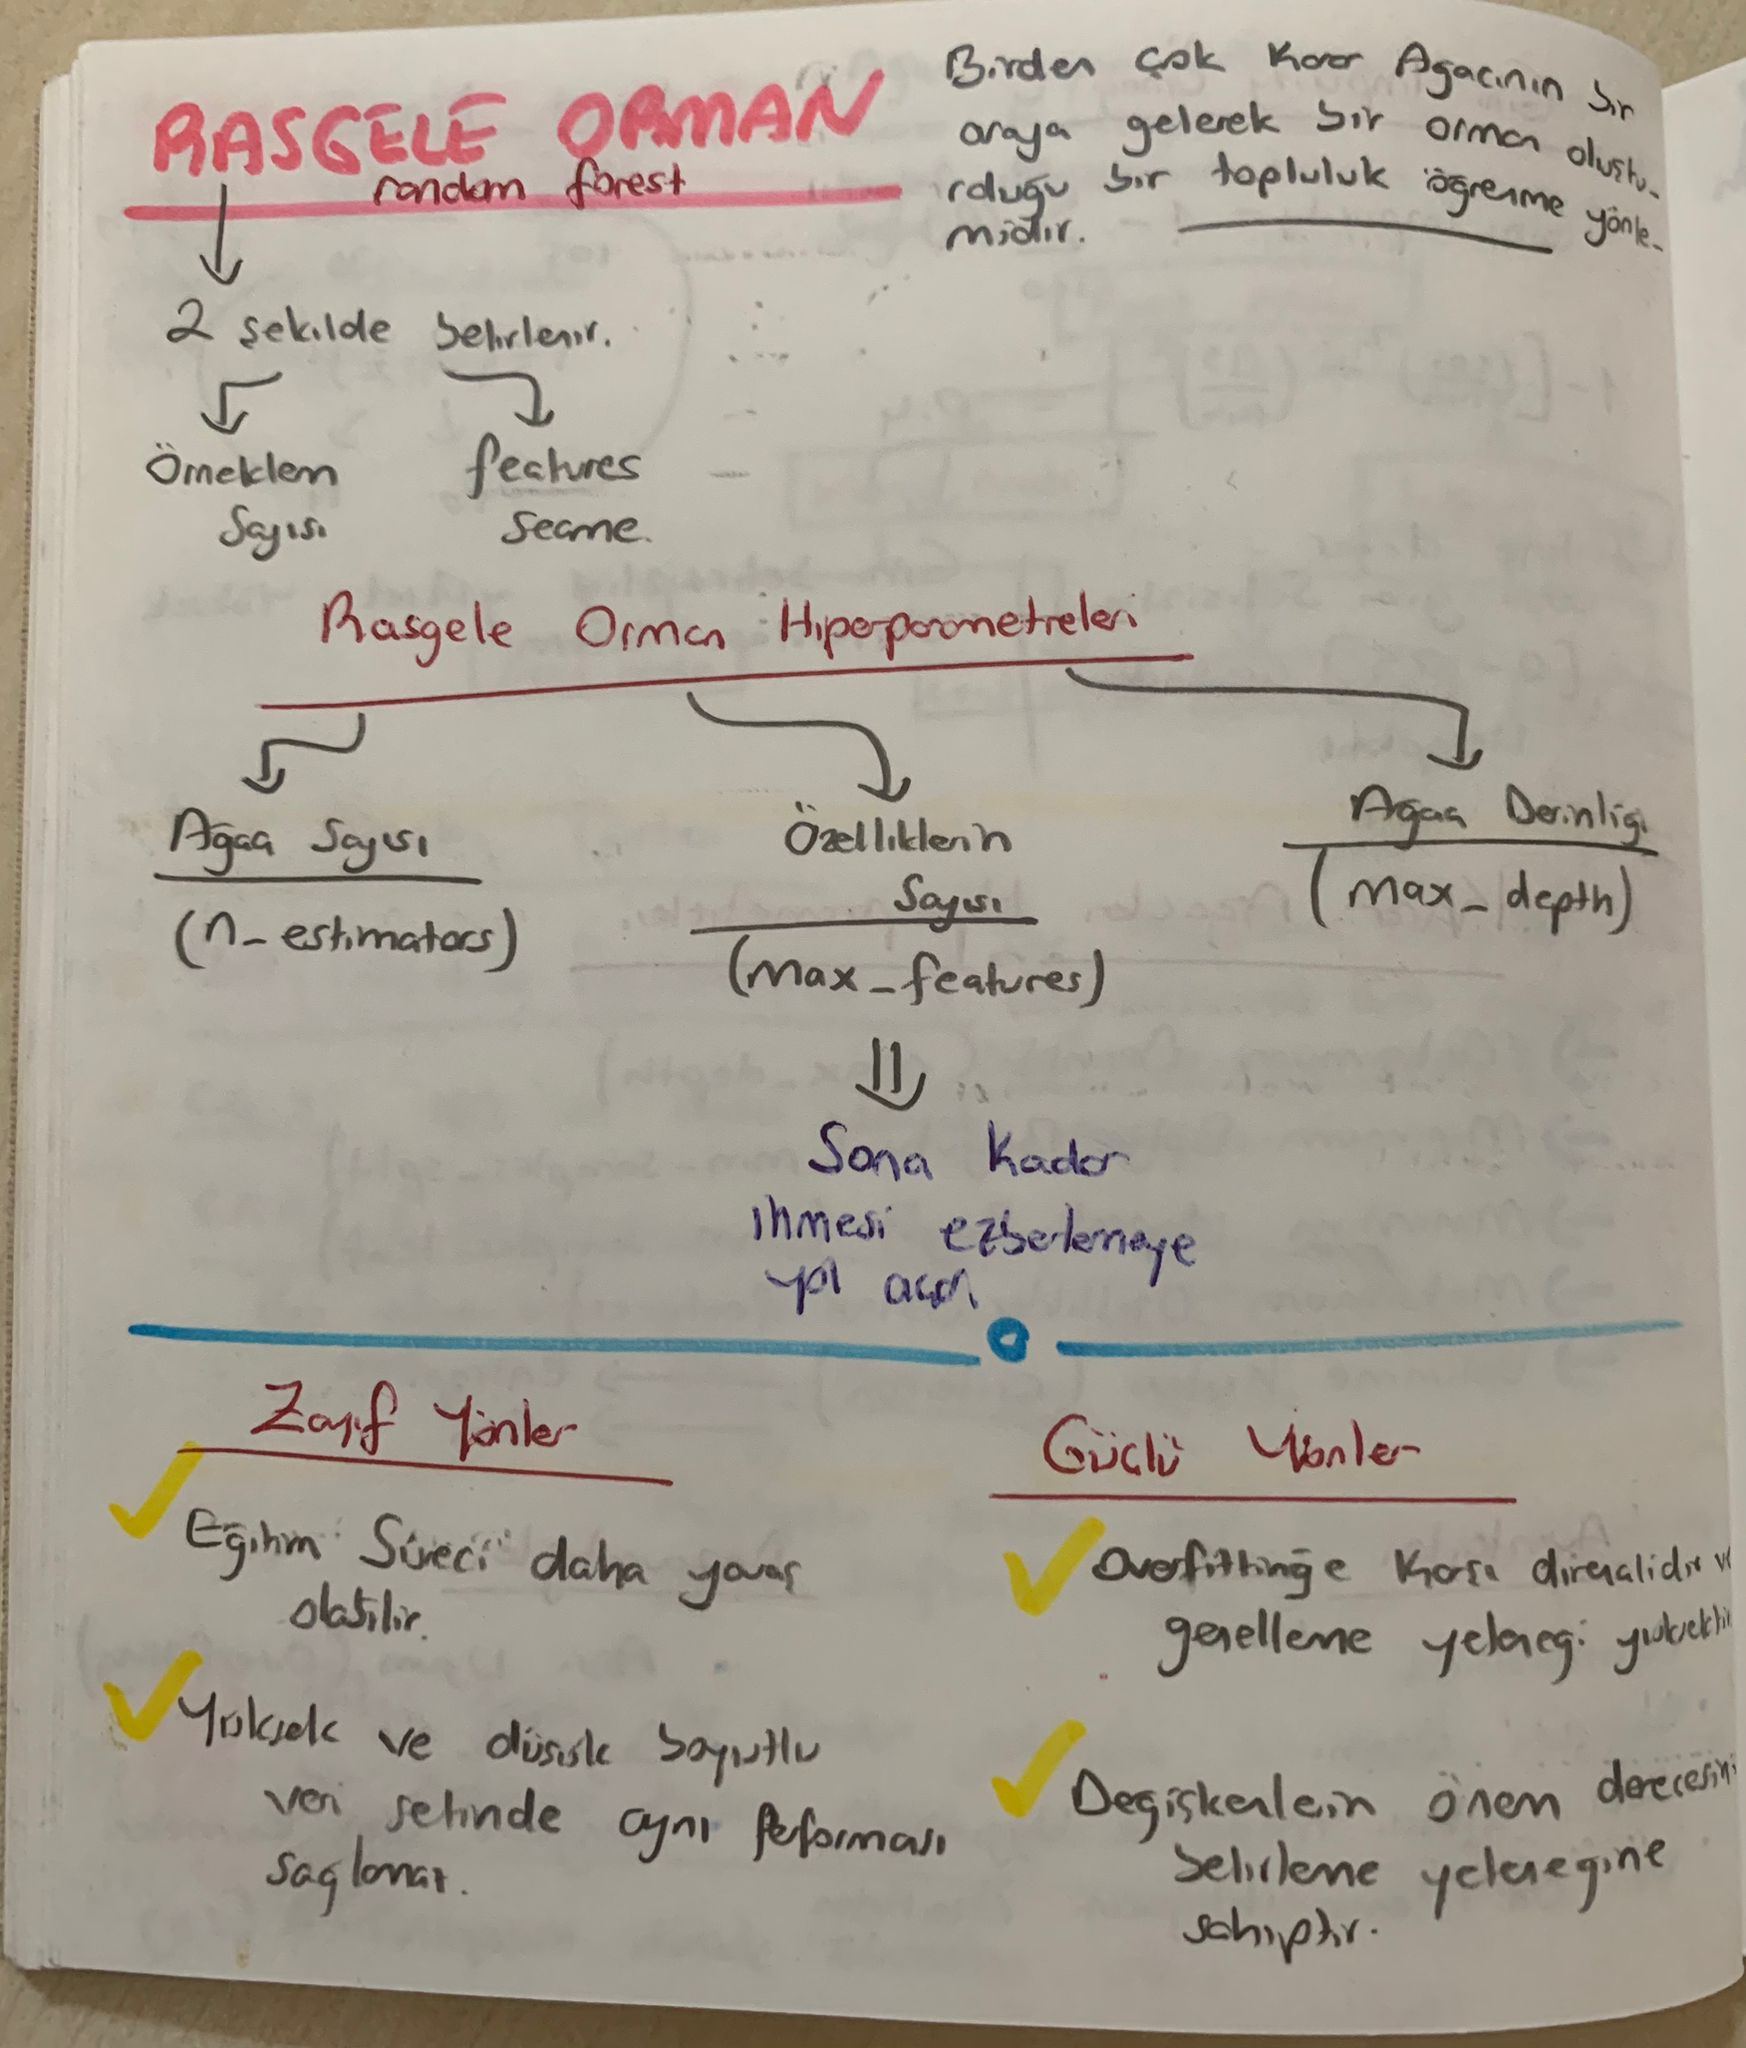 RASGELE ORMAN
random forest
Birden çok Karar Ağacının bir
araya gelerek bir orman oluştu-
rduğu bir topluluk öğrenme yönte-
midir.
2 şekilde belirlenir.
Örneklem
Sayısı
features
seçme.
Rasgele Orman Hiperparametreleri
Ağaç Sayısı
(n_estimators)
Özelliklerin
Sayısı
(max_features)
Ağaç Derinliği
(max_depth)
Sona Kadar
inmesi ezberlemeye
yol açar
Zayıf Yönler
Eğitim Süreci daha yavaş
olabilir.
Yüksek ve düşük boyutlu
veri setinde aynı Performası
sağlamaz.
Güçlü Yönler
Overfittinğe karşı dirençlidir ve
genelleme yeteneği yüksektir
Değişkenlerin önem derecesini
belirleme yeteneğine
sahiptir.